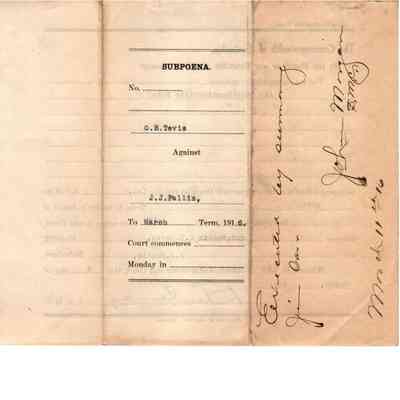 SUBPOENA.
No.
G.B.Tevis
Against
J.J.Fallis,
To March Term, 1916.
Court commences
Monday in
Executed by summoning
Jim
John Morgan
March 11th 16